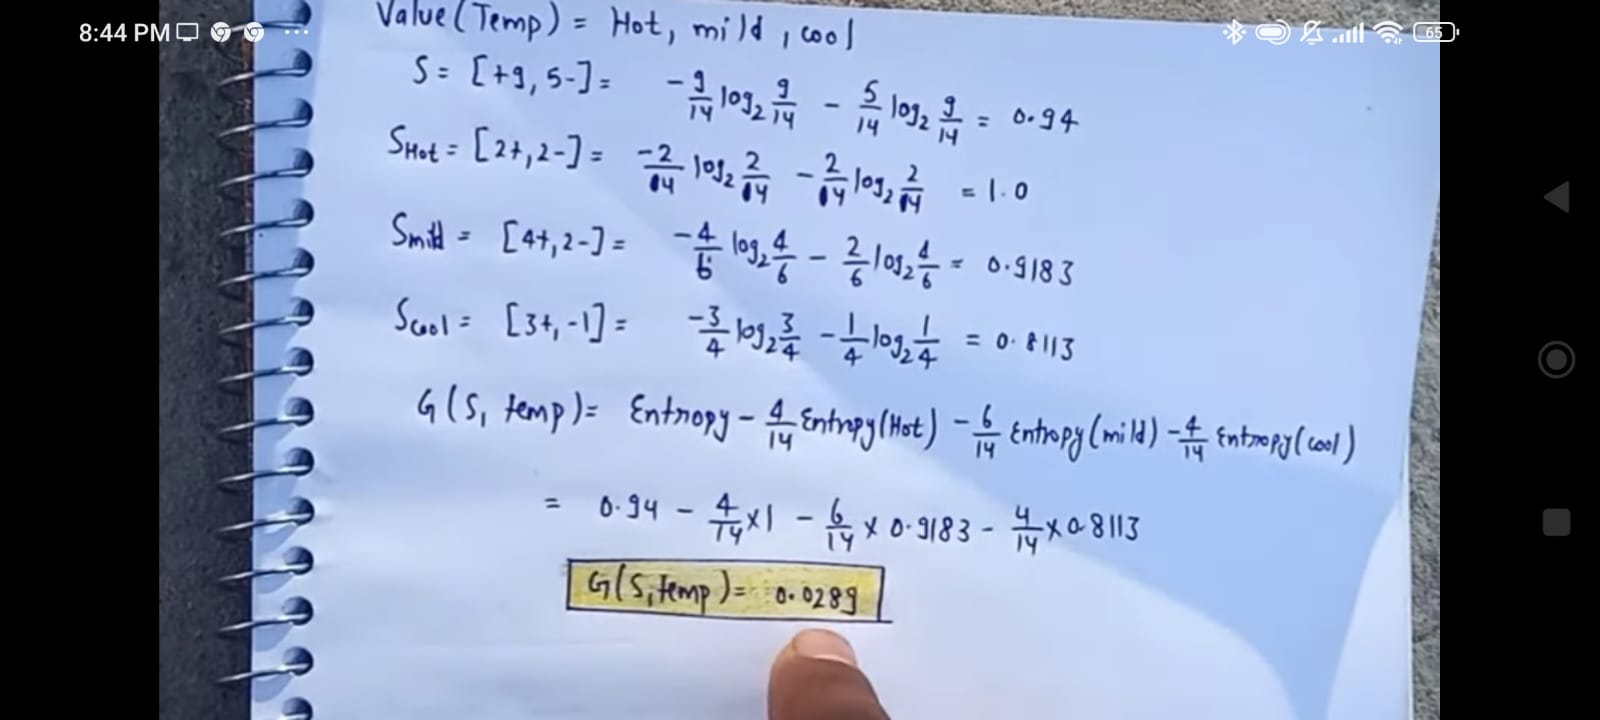 8:44 PM ... 65
Value(Temp) = Hot, mild, cool
S = [+9, 5-] = -9/14 log₂ 9/14 - 5/14 log₂ 9/14 = 0.94
SHot = [2+, 2-] = -2/14 log₂ 2/14 - 2/14 log₂ 2/14 = 1.0
Smild = [4+, 2-] = -4/6 log₂ 4/6 - 2/6 log₂ 4/6 = 0.9183
SCool = [3+, -1] = -3/4 log₂ 3/4 - 1/4 log₂ 1/4 = 0.8113
G(S, temp) = Entropy - 4/14 Entropy(Hot) - 6/14 Entropy(mild) - 4/14 Entropy(cool)
= 0.94 - 4/14 x 1 - 6/14 x 0.9183 - 4/14 x 0.8113
G(S, temp) = 0.0289